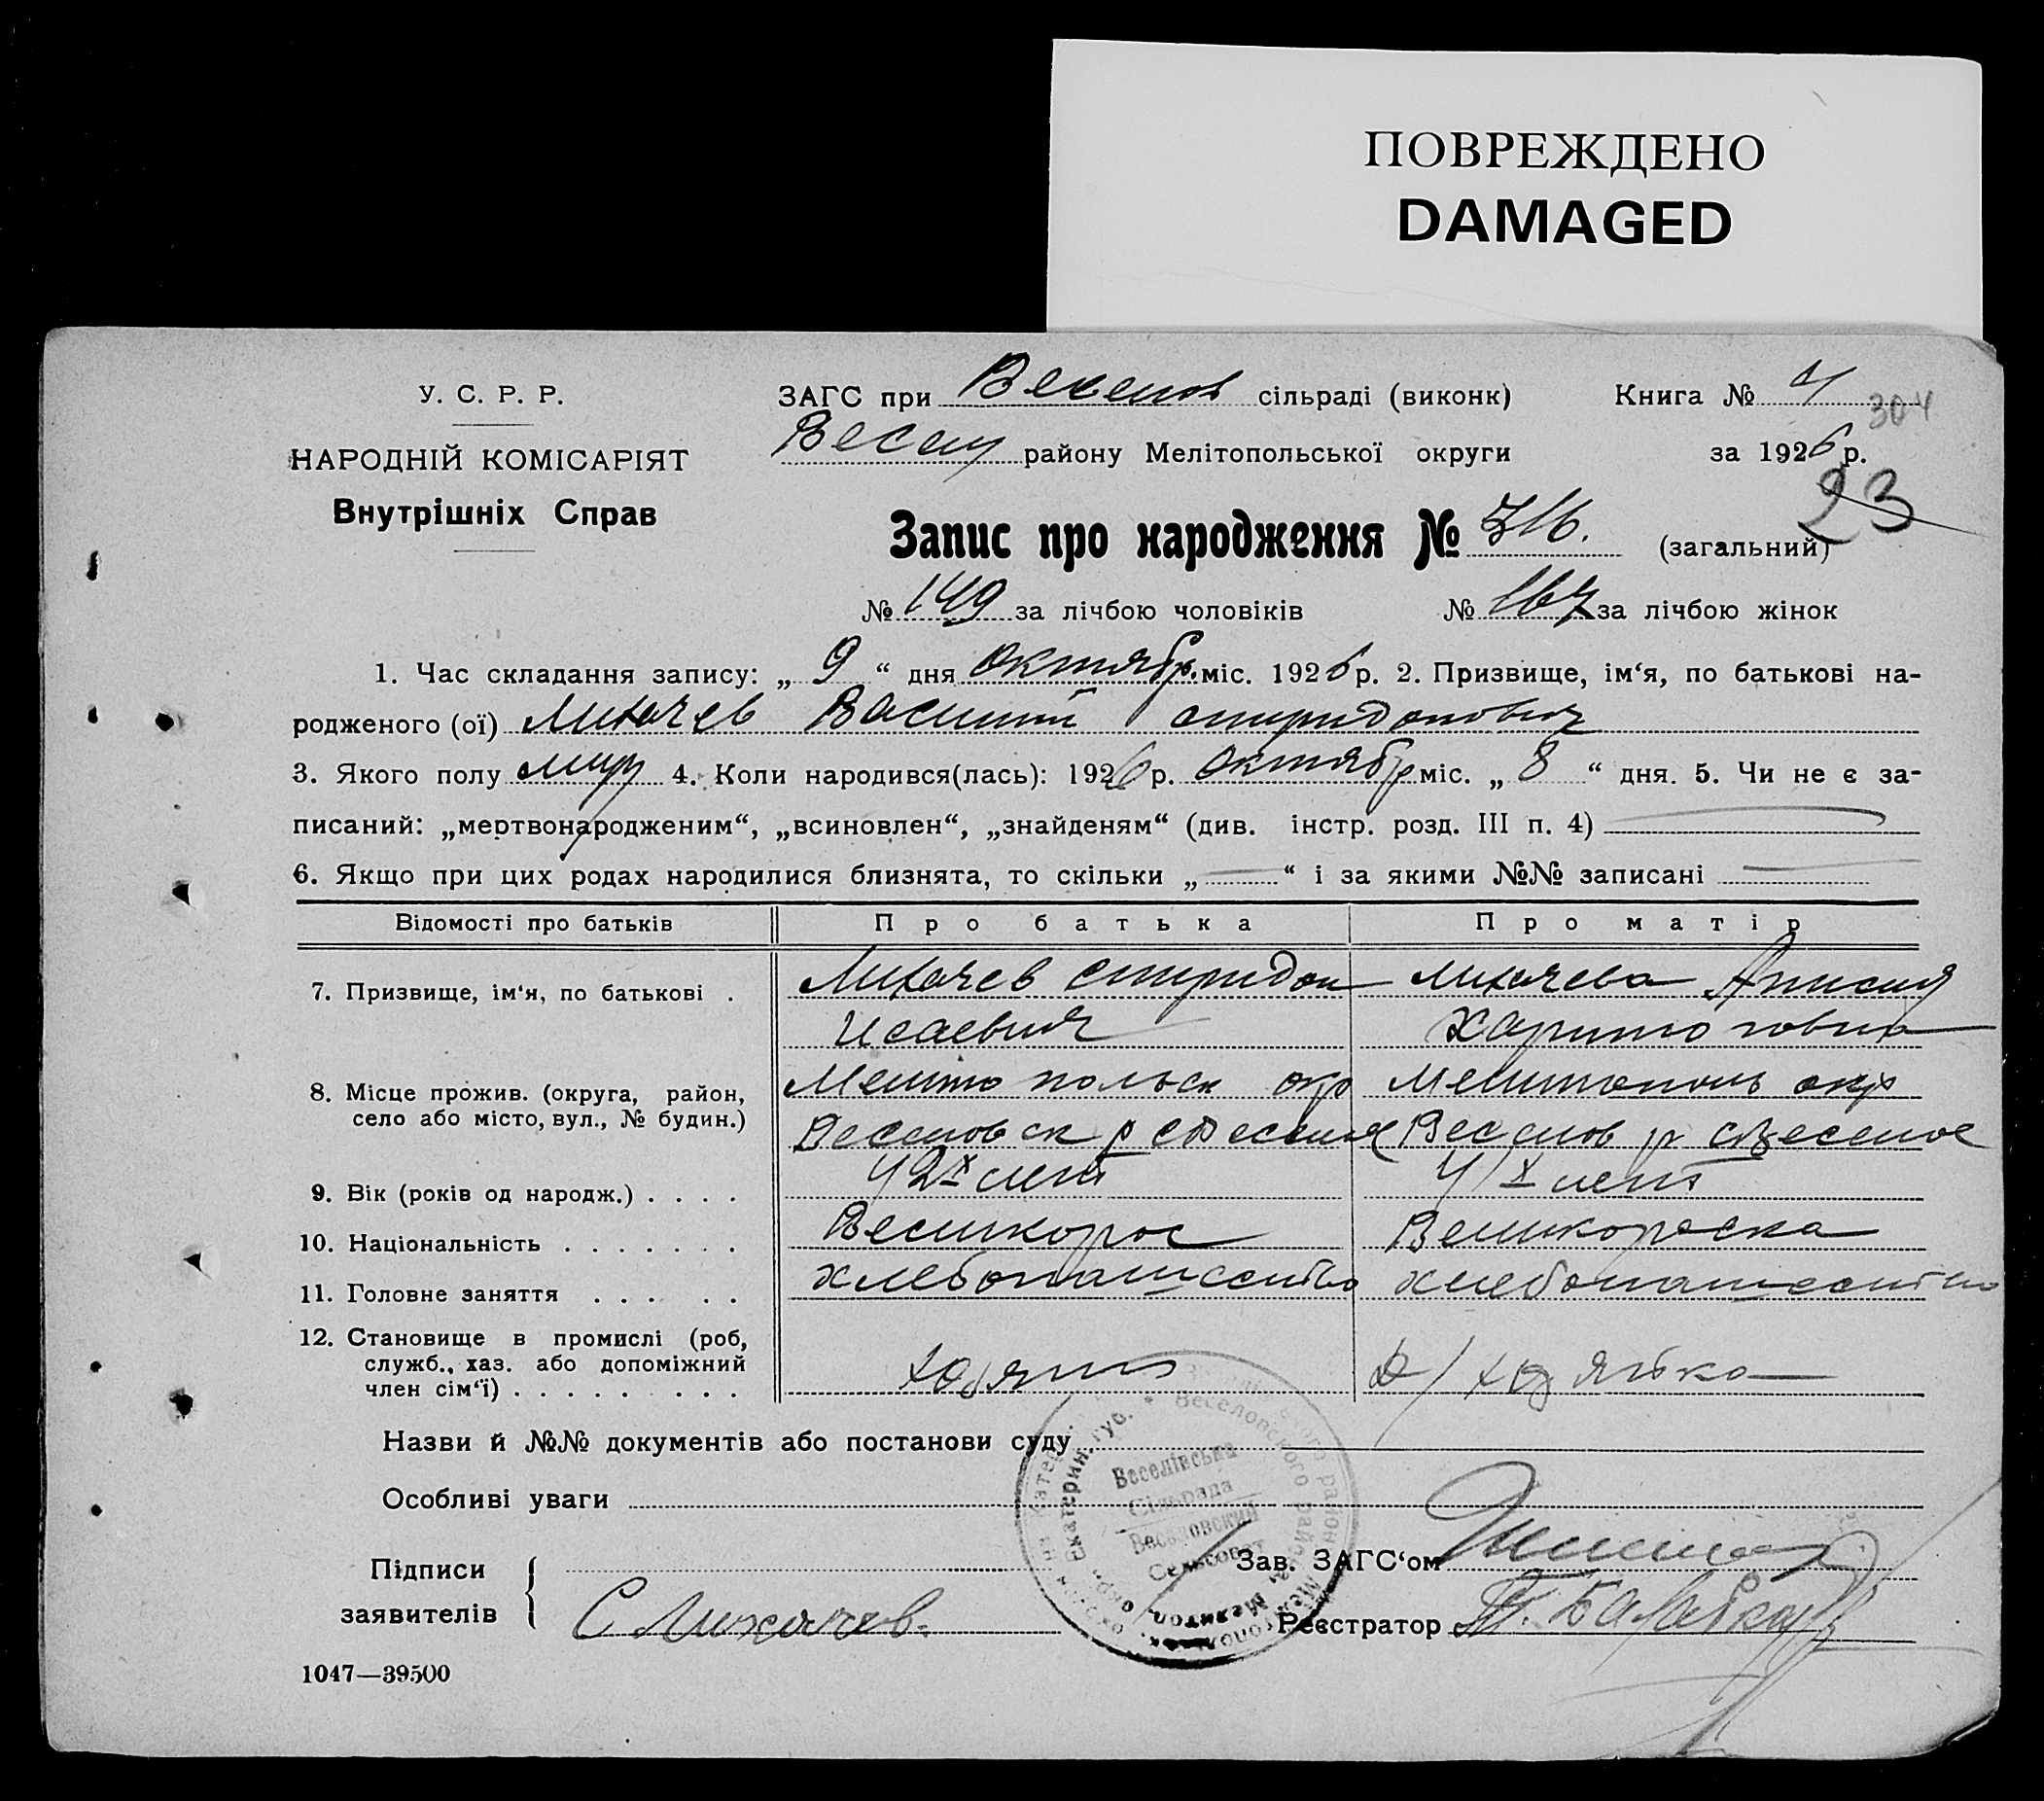 ПОВРЕЖДЕНО
DAMAGED
У. С. Р. Р.
ЗАГС при Веселов сільраді (виконк) Книга № 4
304
НАРОДНІЙ КОМІСАРІЯТ
Весел району Мелітопольської округи за 1926 р.
Внутрішніх Справ
23
Запис про народження № 316. (загальний)
№ 149 за лічбою чоловіків № 167 за лічбою жінок
1. Час складання запису: „ 9 “ дня октябр. міс. 1926 р. 2. Призвище, ім‘я, по батькові на-
родженого (ої) Лихачев Василий спиридонович
3. Якого полу муж 4. Коли народився(лась): 1926 р. октябр міс. „ 8 “ дня. 5. Чи не є за-
писаний: „мертвонародженим“, „всиновлен“, „знайденям“ (див. інстр. розд. III п. 4)
6. Якщо при цих родах народилися близнята, то скільки „ — “ і за якими №№ записані —
Відомості про батьків Про батька Про матір
7. Призвище, ім‘я, по батькові . Лихачев спиридон Лихачева Анисия
Исаевич Харитоновна
8. Місце прожив. (округа, район, Мелитопольск окр Мелитополь окр
село або місто, вул., № будин.) Веселовск р с Веселое Веселов р с Веселое
9. Вік (років од народж.) . . . . 42х лет 41х лет
10. Національність . . . . . . . Великорос Великороска
11. Головне заняття . . . . . хлебопашество хлебопашество
12. Становище в промислі (роб,
служб., хаз. або допоміжний
член сім‘ї) . . . . . . . . . хозяин д/хозяйка
Назви й №№ документів або постанови суду
Особливі уваги
Веселівська
Сільрада
Веселовский
Сельсовет
Підписи Зав. ЗАГС‘ом
заявителів С Лихачев. Реєстратор
1047—39500